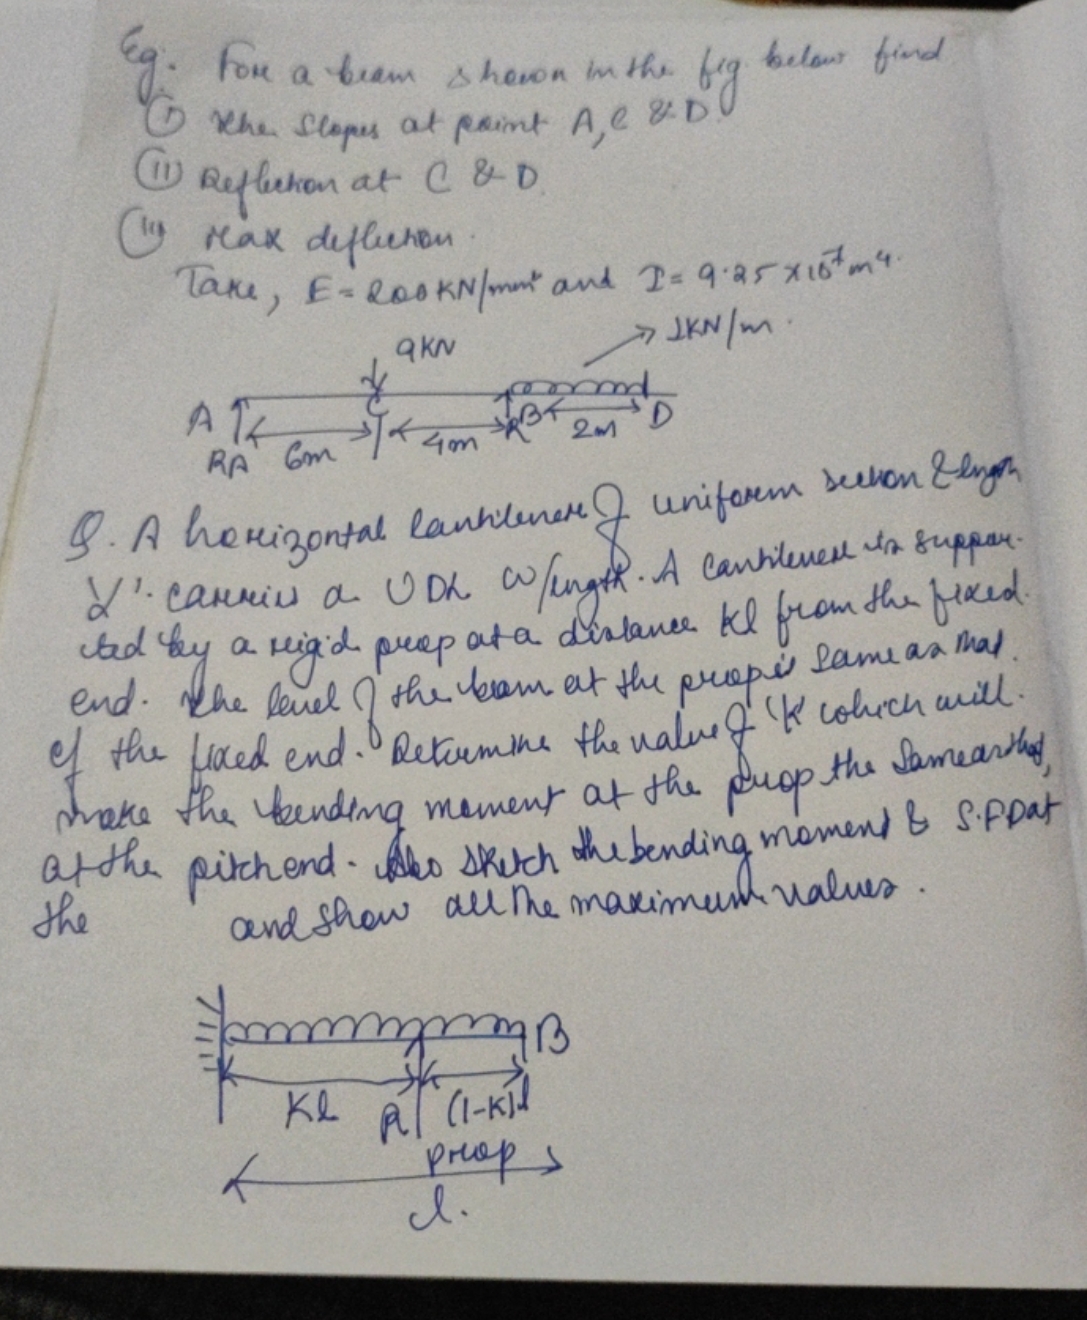 Eg. For a beam shown in the fig. below find
(i) the Slopes at point A, C & D.
(ii) Deflection at C & D.
(iii) Max deflection.
Take, E = 200 KN/mm² and I = 9.25 x 10⁻⁴ m⁴.
9KN
1KN/m.
A C B D
RA 6m 4m R 2m
Q. A horizontal Cantilever of uniform section & length
'l'. carries a UDL W/length. A cantilever is suppor-
ted by a rigid prop at a distance Kl from the fixed.
end. The level of the beam at the prop is same as that.
of the fixed end. Determine the value of 'K' which will.
make the bending moment at the prop the same as that,
at the pitch end. Also sketch the bending moment & S.F.D at
the and show all the maximum values.
B
Kl R (1-K)l
prop
l.